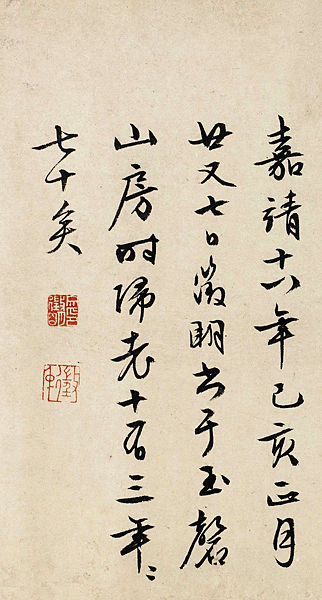 嘉靖十八年己亥正月
廿又七日徵明書于玉磬
山房時歸老十有三年年
七十矣